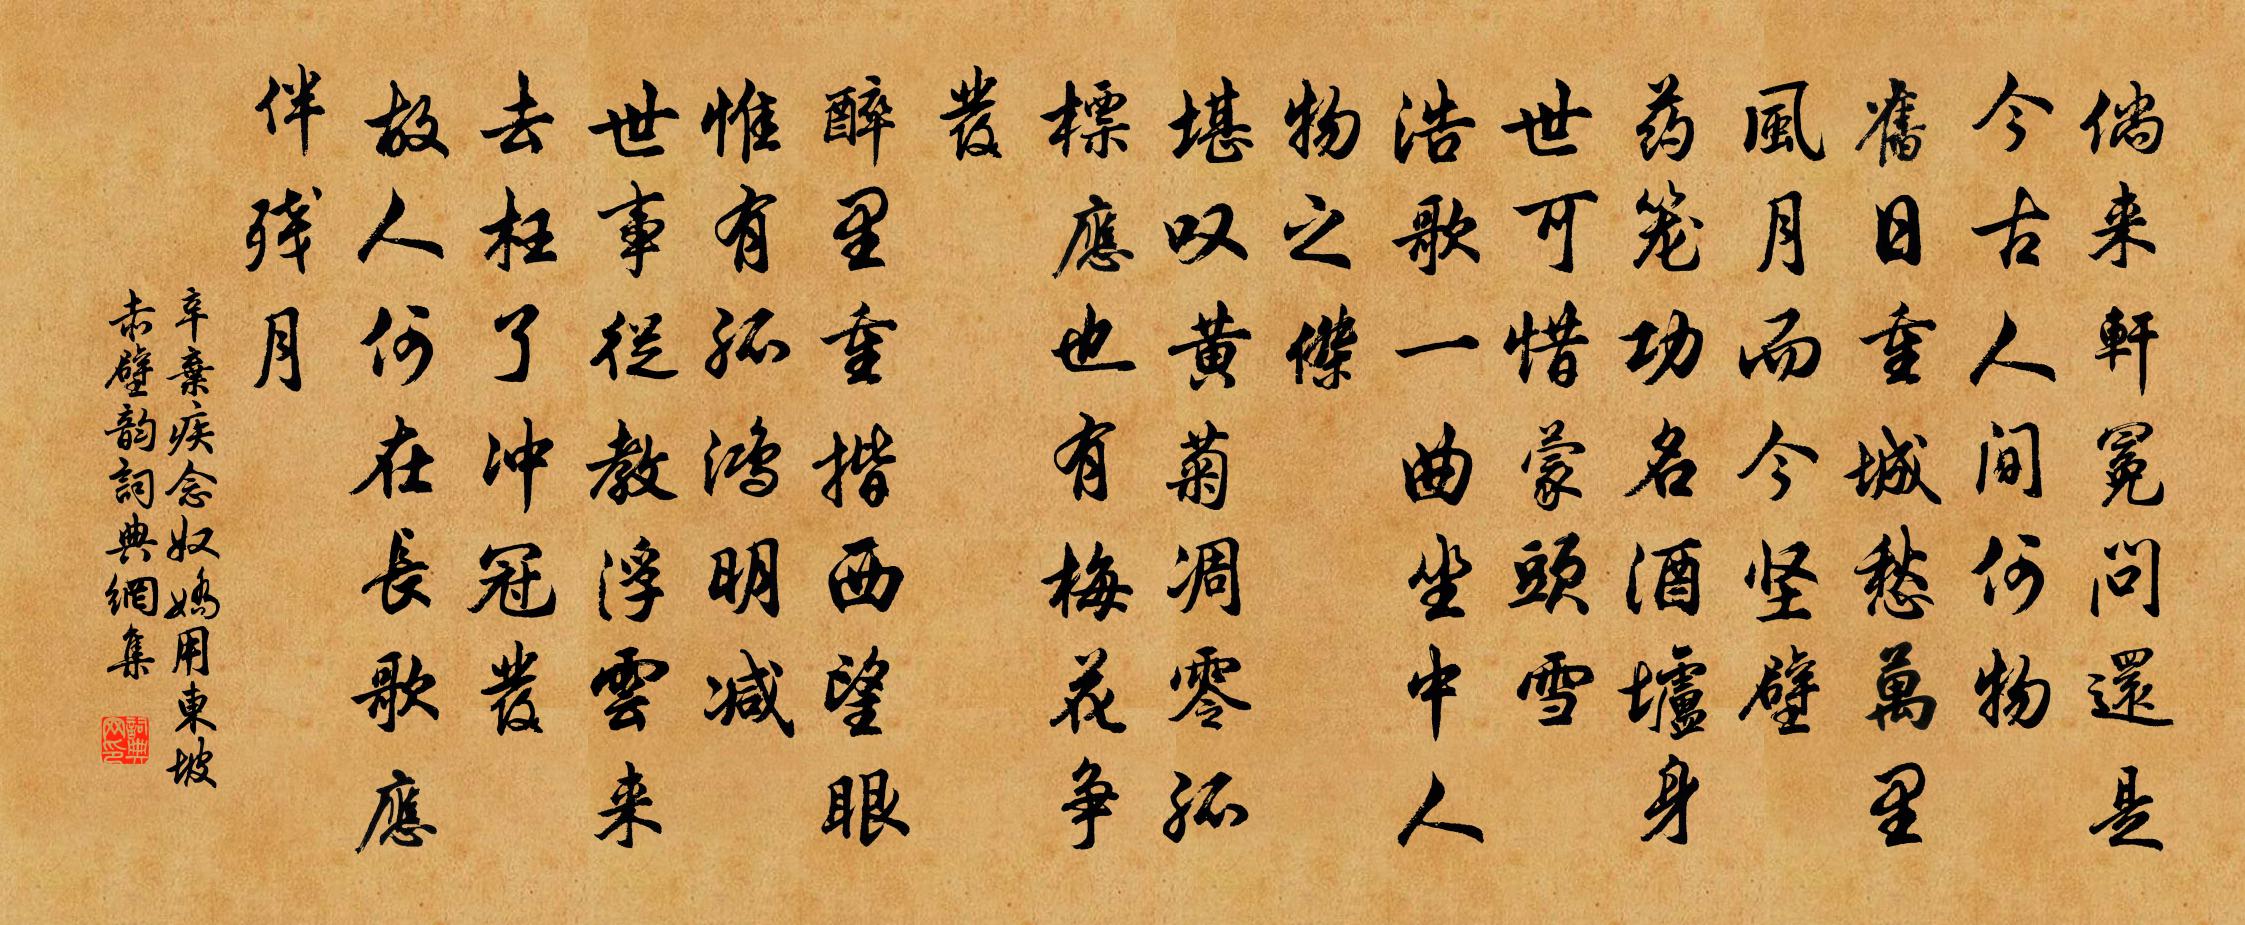 倘来軒冕問還是
今古人间何物
舊日重城愁萬里
風月而今坚壁
药笼功名酒壚身
世可惜蒙頭雪
浩歌一曲坐中人
物之傑
堪叹黄菊凋零孤
標應也有梅花争
發
醉里重揩西望眼
惟有孤鸿明减
世事從教浮雲来
去枉了冲冠發
故人何在長歌應
伴残月
辛棄疾念奴嬌用東坡
赤壁韵詞典網集